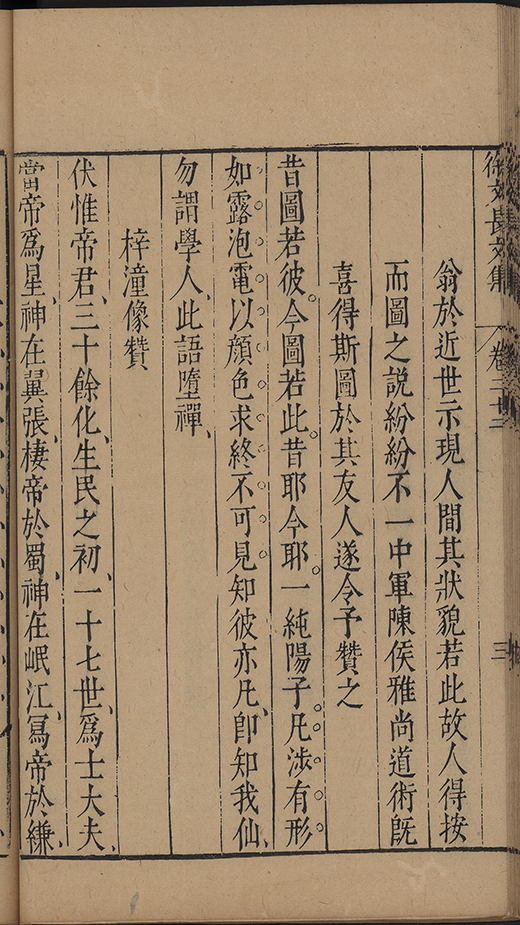 徐文長文集 卷二十三 三
翁於近世示現人間其狀貌若此故人得按
而圖之說紛紛不一中軍陳侯雅尚道術旣
喜得斯圖於其友人遂令予贊之
昔圖若彼。今圖若此。昔耶今耶。一純陽子。凡涉有形。
如露泡電以顏色求終不可見知彼亦凡、卽知我仙、
勿謂學人、此語墮禪、
梓潼像贊
伏惟帝君、三十餘化、生民之初、一十七世、爲士大夫、
當帝爲星、神在翼張、棲帝於蜀、神在岷江、冩帝於縑、